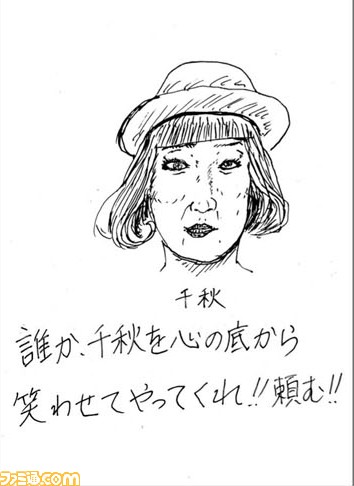 千秋
誰か、千秋を心の底から
笑わせてやってくれ!!頼む!!
ファミ通.com